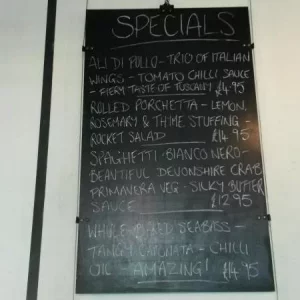 SPECIALS
ALI DI POLLO - TRIO OF ITALIAN
WINGS - TOMATO CHILLI SAUCE
- FIERY TASTE OF TUSCANY £14.95
ROLLED PORCHETTA - LEMON,
ROSEMARY & THYME STUFFING -
ROCKET SALAD £14.95
SPAGHETTI BIANCO NERO -
BEAUTIFUL DEVONSHIRE CRAB
PRIMAVERA VEG - SILKY BUTTER
SAUCE £12.95
WHOLE BAKED SEABASS -
TANGY CAPONATA - CHILLI
OIL - AMAZING! £14.95